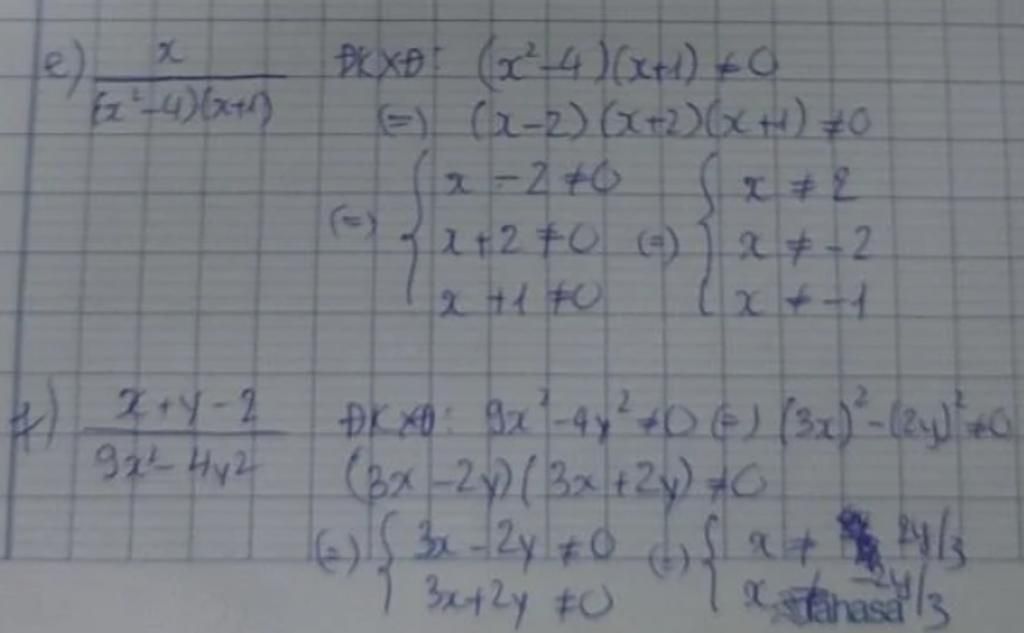 e) x/((x²-4)(x+1)) ĐKXĐ: (x²-4)(x+1) ≠ 0
(=) (x-2)(x+2)(x+1) ≠ 0
(=) { x-2 ≠ 0 (=) { x ≠ 2
x+2 ≠ 0 x ≠ -2
x+1 ≠ 0 x ≠ -1
f) (x+y-2)/(9x²-4y2) ĐKXĐ: 9x²-4y² ≠ 0 (=) (3x)²-(2y)² ≠ 0
(3x-2y)(3x+2y) ≠ 0
(=) { 3x-2y ≠ 0 (=) { x ≠ 2y/3
3x+2y ≠ 0 x ≠ -2y/3